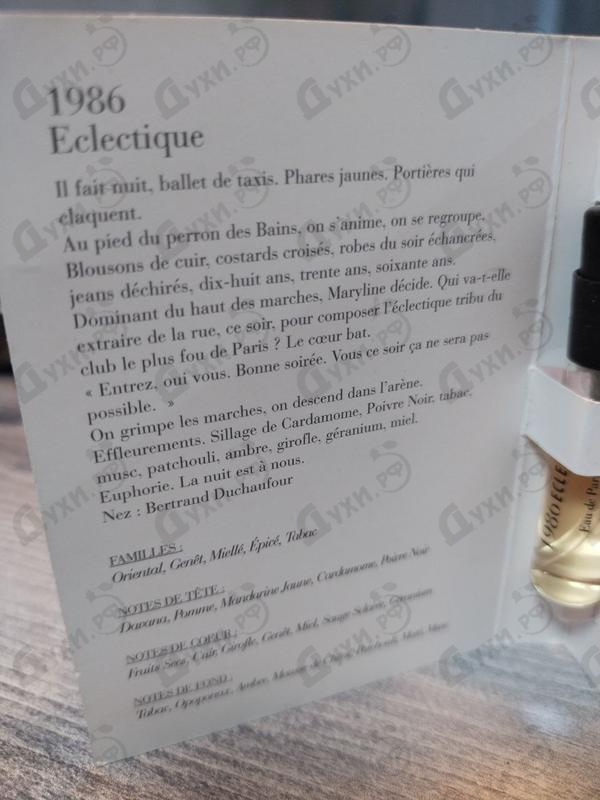 1986
Eclectique
Il fait nuit, ballet de taxis. Phares jaunes. Portières qui
claquent.
Au pied du perron des Bains, on s'anime, on se regroupe.
Blousons de cuir, costards croisés, robes du soir échancrées,
jeans déchirés, dix-huit ans, trente ans, soixante ans.
Dominant du haut des marches, Maryline décide. Qui va-t-elle
extraire de la rue, ce soir, pour composer l'éclectique tribu du
club le plus fou de Paris ? Le cœur bat.
« Entrez, oui vous. Bonne soirée. Vous ce soir ça ne sera pas
possible. »
On grimpe les marches, on descend dans l'arène.
Effleurements. Sillage de Cardamome, Poivre Noir, tabac,
musc, patchouli, ambre, girofle, géranium, miel.
Euphorie. La nuit est à nous.
Nez : Bertrand Duchaufour
FAMILLES :
Oriental, Genêt, Miellé, Épicé, Tabac
NOTES DE TÊTE :
Davana, Pomme, Mandarine Jaune, Cardamome, Poivre Noir
NOTES DE CŒUR :
Fruits Secs, Cuir, Girofle, Genêt, Miel, Sauge Sclarée, Géranium
NOTES DE FOND :
Tabac, Opoponax, Ambre, Mousse de Chêne, Patchouli,
Eau de Par
Духи.рф